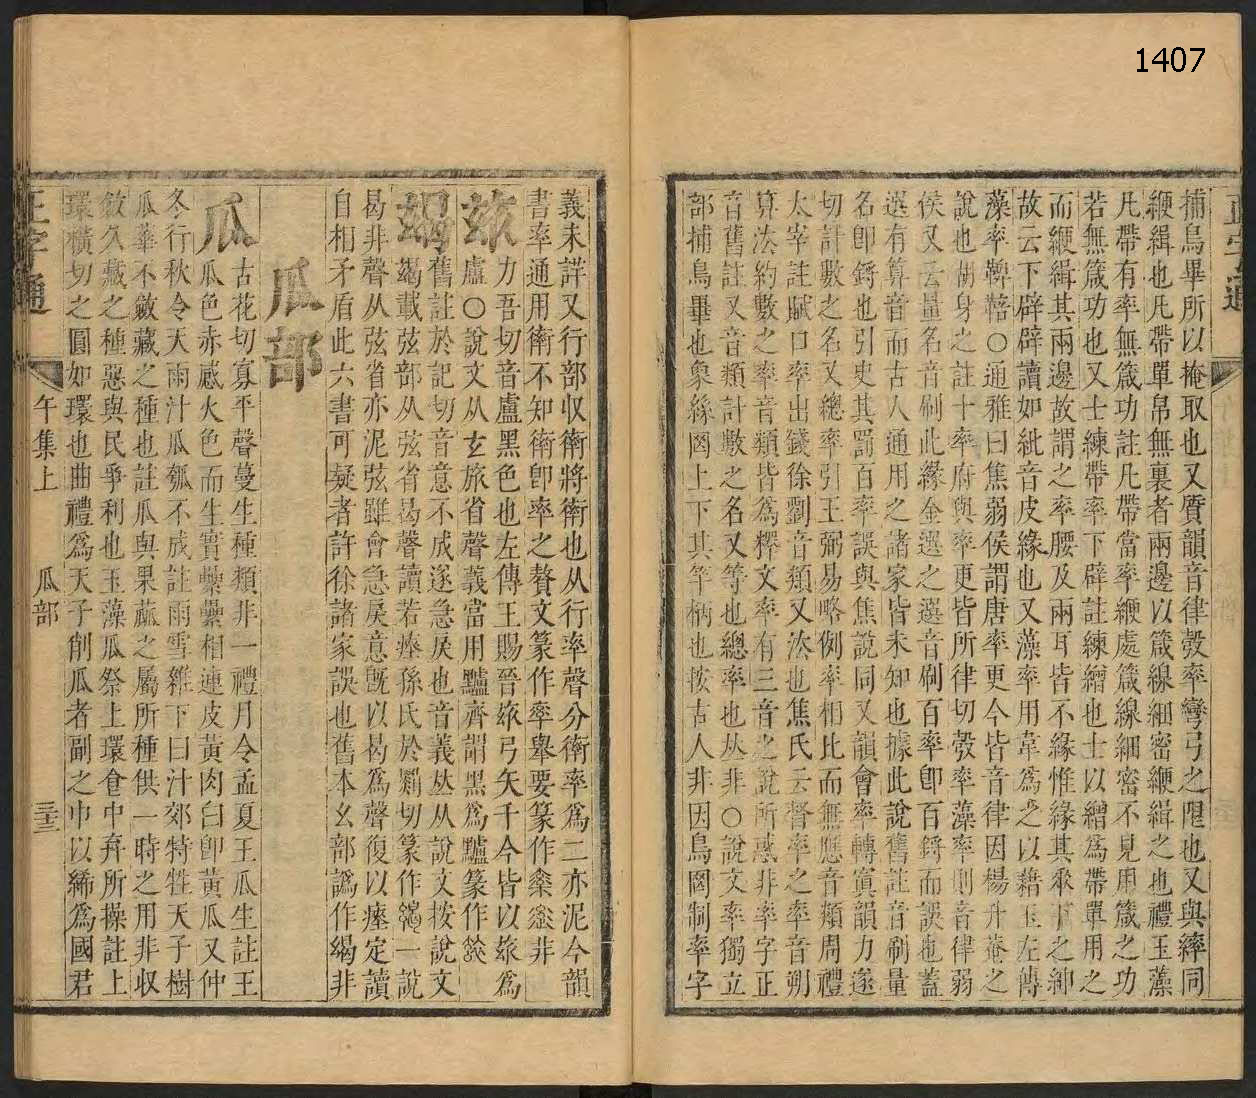 1407
正字通
捕鳥畢所以掩取也又質韻音律彀率彎弓之限也又與繂同
緶緝也凡帶單帛無裏者兩邊以箴線細密緶緝之也禮玉藻
凡帶有率無箴功註凡帶當率緶處箴線細密不見用箴之功
若無箴功也又士練帶率下辟註練繒也士以繒爲帶單用之
而緶緝其兩邊故謂之率腰及兩耳皆不緣惟緣其下之紳
故云下辟辟讀如紕音皮緣也又藻率用韋爲之以藉玉左傳
藻率鞞鞛○通雅曰焦弱侯謂唐率更今皆音律因楊升菴之
說也之註十率府與率更皆所律切彀率藻率則音律弱
侯又云量名音刷此緣金選之選音刷百率卽百鋝而誤也蓋
選有算音而古人通用之諸家皆未知也據此說舊註音刷量
名卽鋝也引史其罰百率誤與焦說同又韻會率轉寘韻力遂
切計數之名又總率引王弼易略例率相比而無應音類周禮
太宰註賦口率出錢徐劉音類又法也焦氏云督率之率音朔
算法約數之率音類皆爲釋文率有三音之說所惑非率字正
音舊註又音類計數之名又等也總率也𠀤非○說文率獨立
部捕鳥畢也象絲罔上下其竿柄也按古人非因鳥罔制率字
義未詳又行部收䘖將䘖也从行率聲分䘖率爲二亦泥今韻
書率通用䘖不知䘖卽率之贅文篆作率舉要篆作非
玈
力吾切音盧黑色也左傳王賜晉玈弓矢千今皆以玈爲
盧○說文从玄旅省聲義當用黸齊謂黑爲黸篆作
舊註於記切音意不成遂急戾也音義𠀤从說文按說文
載弦部从弦省曷聲讀若瘞孫氏於罽切篆作一說
曷非聲从弦省亦泥弦雖會急戾意旣以曷爲聲復以瘞定讀
自相矛盾此六書可疑者許徐諸家誤也舊本幺部譌作非
瓜部
瓜
古花切寡平聲蔓生種類非一禮月令孟夏王瓜生註王
瓜色赤感火色而生實纍纍相連皮黃肉白卽黃瓜又仲
冬行秋令天雨汁瓜瓠不成註雨雪雜下曰汁郊特牲天子樹
瓜華不斂藏之種也註瓜與果蓏之屬所種供一時之用非收
斂久藏之種惡與民爭利也玉藻瓜祭上環食中弃所操註上
環橫切之圓如環也曲禮爲天子削瓜者副之巾以絺爲國君
正字通
午集上
瓜部
三十三